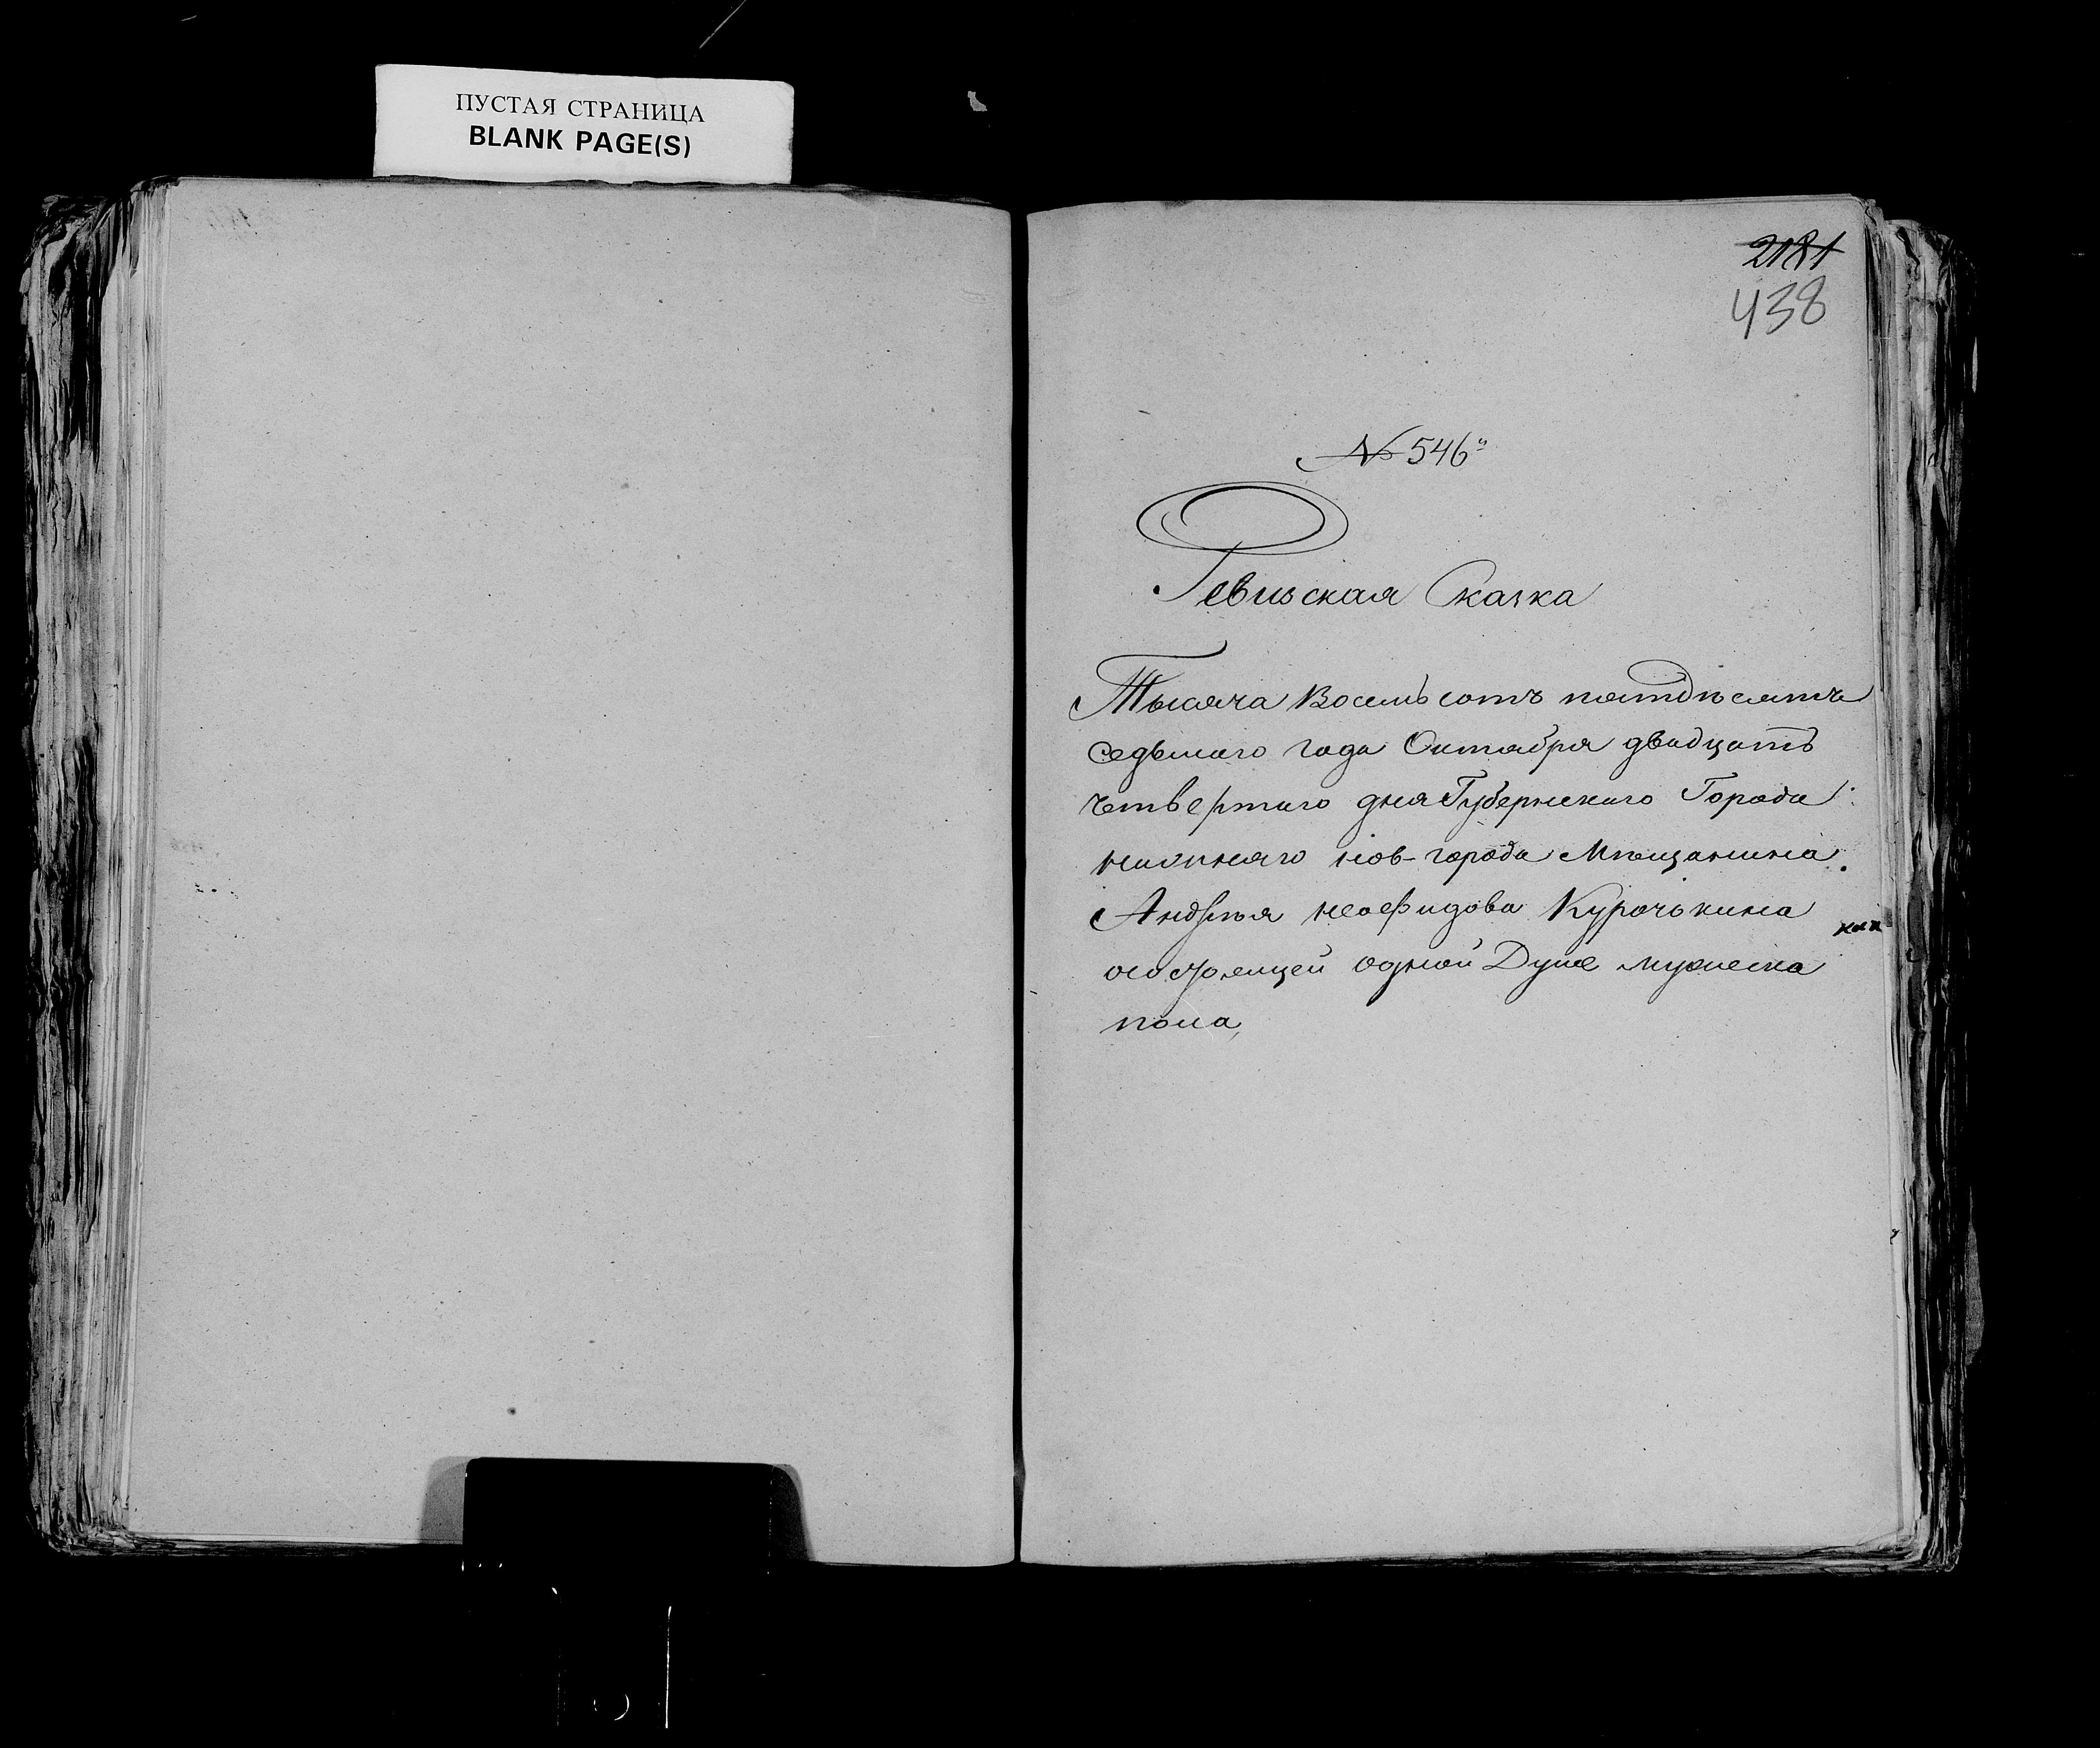 ПУСТАЯ СТРАНИЦА
BLANK PAGE(S)
2181
438
№ 546й
Ревиская Сказка
Тысяча Восемьсотъ пятдѣсятъ
седьмаго года Октября двадцать
четвертаго дня Губернскаго Города
нижняго нов-города Мѣщанина
Андрѣя неофидова Курочькина
о состоящей одной Душе мужеска
пола,